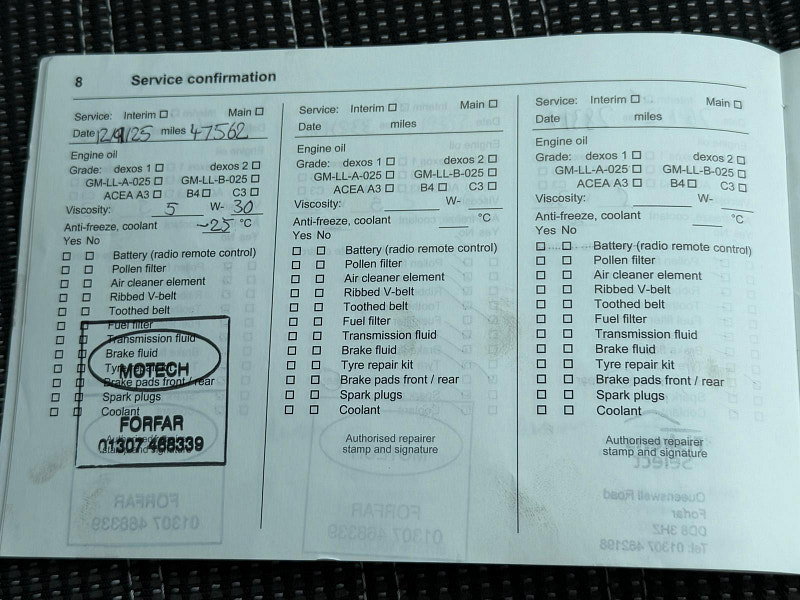 8 Service confirmation
Service: Interim ☐ Main ☐
Date 12/9/25 miles 47562
Engine oil
Grade: dexos 1 ☐ dexos 2 ☐
GM-LL-A-025 ☐ GM-LL-B-025 ☐
ACEA A3 ☐ B4 ☐ C3 ☐
Viscosity: 5 W- 30
Anti-freeze, coolant -25 °C
Yes No
☐ ☐ Battery (radio remote control)
☐ ☐ Pollen filter
☐ ☐ Air cleaner element
☐ ☐ Ribbed V-belt
☐ ☐ Toothed belt
☐ ☐ Fuel filter
☐ ☐ Transmission fluid
☐ ☐ Brake fluid
☐ ☐ Tyre repair kit
☐ ☐ Brake pads front / rear
☐ ☐ Spark plugs
☐ ☐ Coolant
Authorised repairer
stamp and signature
MOTECH
FORFAR
01307 468339
Service: Interim ☐ Main ☐
Date miles
Engine oil
Grade: dexos 1 ☐ dexos 2 ☐
GM-LL-A-025 ☐ GM-LL-B-025 ☐
ACEA A3 ☐ B4 ☐ C3 ☐
Viscosity: W-
Anti-freeze, coolant °C
Yes No
☐ ☐ Battery (radio remote control)
☐ ☐ Pollen filter
☐ ☐ Air cleaner element
☐ ☐ Ribbed V-belt
☐ ☐ Toothed belt
☐ ☐ Fuel filter
☐ ☐ Transmission fluid
☐ ☐ Brake fluid
☐ ☐ Tyre repair kit
☐ ☐ Brake pads front / rear
☐ ☐ Spark plugs
☐ ☐ Coolant
Authorised repairer
stamp and signature
Service: Interim ☐ Main ☐
Date miles
Engine oil
Grade: dexos 1 ☐ dexos 2 ☐
GM-LL-A-025 ☐ GM-LL-B-025 ☐
ACEA A3 ☐ B4 ☐ C3 ☐
Viscosity: W-
Anti-freeze, coolant °C
Yes No
☐ ☐ Battery (radio remote control)
☐ ☐ Pollen filter
☐ ☐ Air cleaner element
☐ ☐ Ribbed V-belt
☐ ☐ Toothed belt
☐ ☐ Fuel filter
☐ ☐ Transmission fluid
☐ ☐ Brake fluid
☐ ☐ Tyre repair kit
☐ ☐ Brake pads front / rear
☐ ☐ Spark plugs
☐ ☐ Coolant
Authorised repairer
stamp and signature